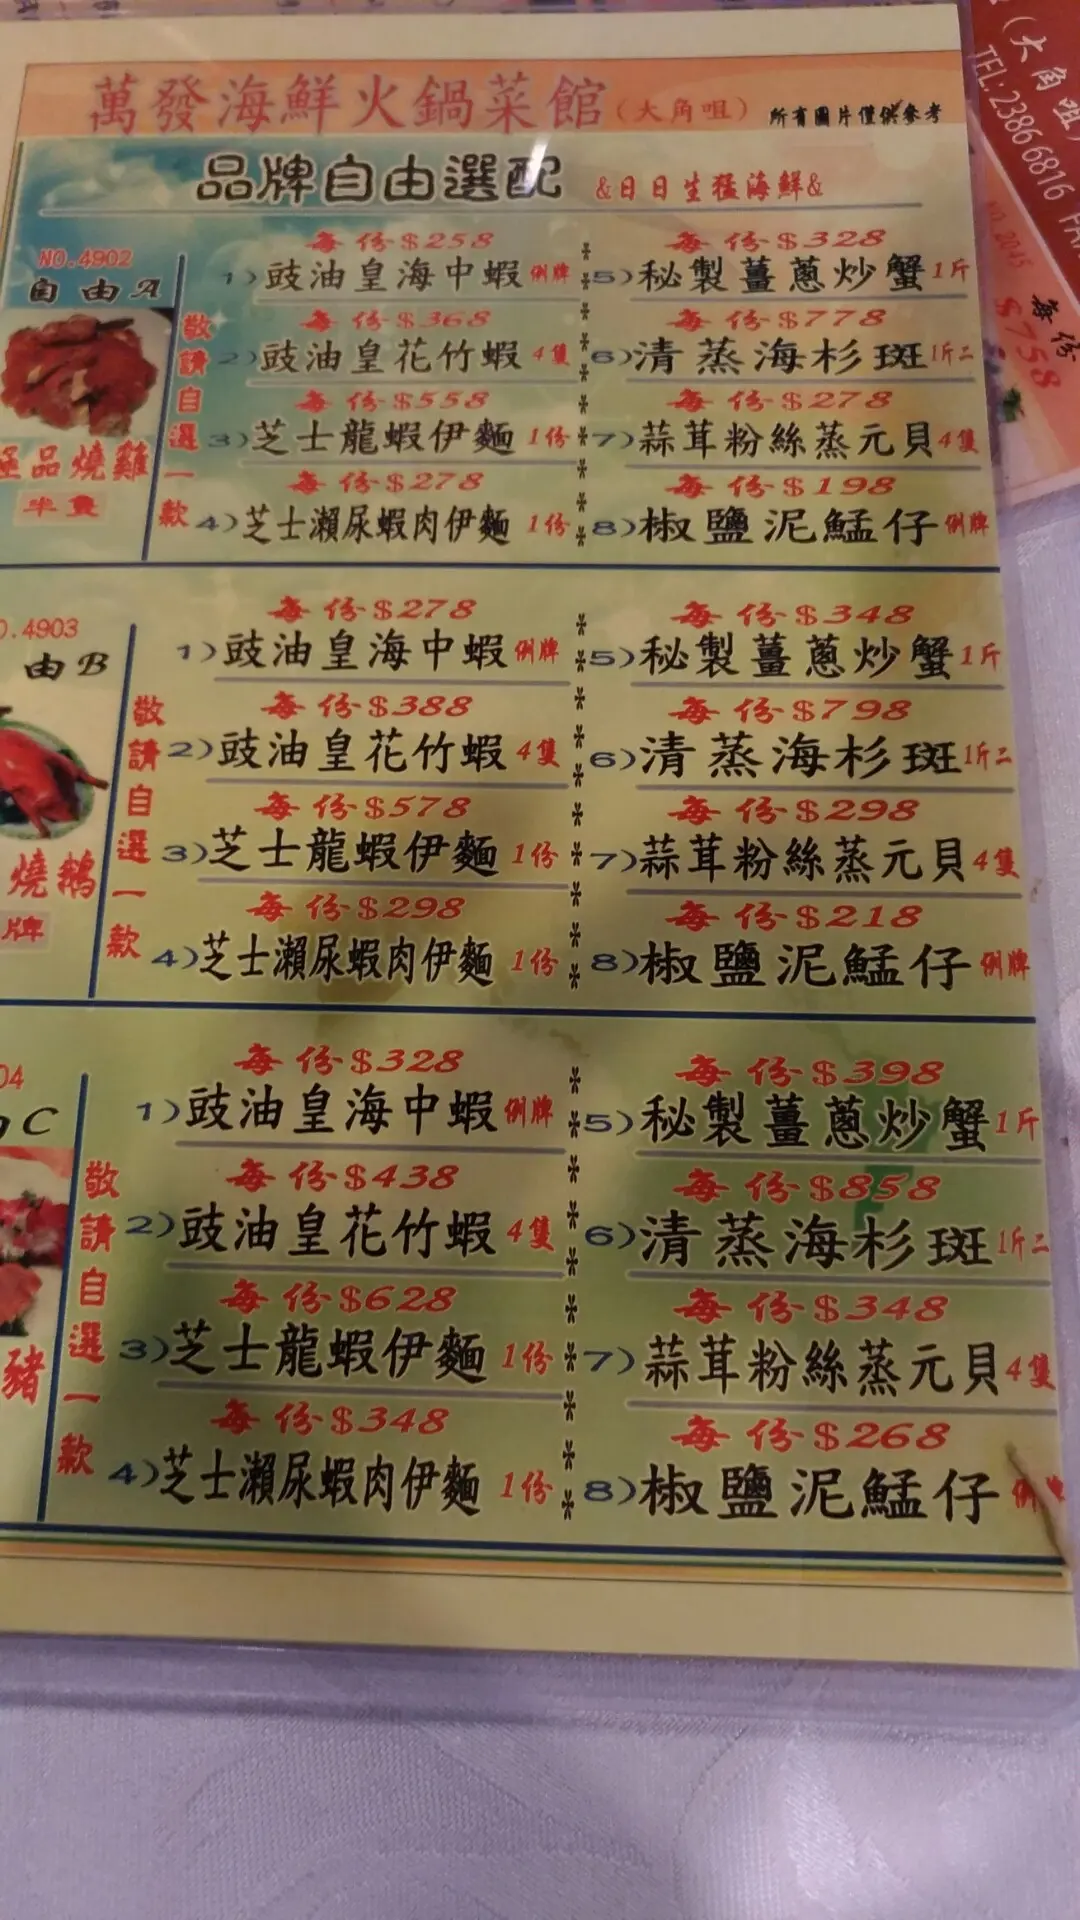 萬發海鮮火鍋菜館(大角咀) 所有圖片僅供參考
品牌自由選配 &日日生猛海鮮&
NO.4902
自由A
極品燒雞
半隻
敬請自選一款
每份$258
1)豉油皇海中蝦 例牌
每份$368
2)豉油皇花竹蝦 4隻
每份$558
3)芝士龍蝦伊麵 1份
每份$278
4)芝士瀨尿蝦肉伊麵 1份
每份$328
5)秘製薑蔥炒蟹 1斤
每份$778
6)清蒸海杉斑 1斤二
每份$278
7)蒜茸粉絲蒸元貝 4隻
每份$198
8)椒鹽泥鯭仔 例牌
O.4903
由B
燒鵝
牌
敬請自選一款
每份$278
1)豉油皇海中蝦 例牌
每份$388
2)豉油皇花竹蝦 4隻
每份$578
3)芝士龍蝦伊麵 1份
每份$298
4)芝士瀨尿蝦肉伊麵 1份
每份$348
5)秘製薑蔥炒蟹 1斤
每份$798
6)清蒸海杉斑 1斤二
每份$298
7)蒜茸粉絲蒸元貝 4隻
每份$218
8)椒鹽泥鯭仔 例牌
04
C
豬
敬請自選一款
每份$328
1)豉油皇海中蝦 例牌
每份$438
2)豉油皇花竹蝦 4隻
每份$628
3)芝士龍蝦伊麵 1份
每份$348
4)芝士瀨尿蝦肉伊麵 1份
每份$398
5)秘製薑蔥炒蟹 1斤
每份$858
6)清蒸海杉斑 1斤二
每份$348
7)蒜茸粉絲蒸元貝 4隻
每份$268
8)椒鹽泥鯭仔 例牌
(大角咀)
TEL:23866816 FA
NO.2045
每份
$758